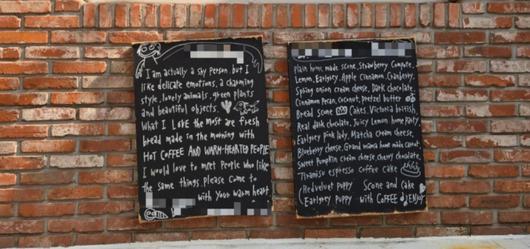 I am actually a shy person but I
like delicate emotions, a charming
style, lovely animals, green plants
and beautiful objects.
What I Love the most are fresh
bread made in the morning with
HOT COFFEE AND WARM-HEARTED PEOPLE
I would love to meet People who like
the same things. please come to
with your warm heart
Plain home made scone, Strawberry Compote,
Lemon, Earlgrey, Apple Cinnamon, Cranberry,
Spring onion cream cheese, Dark chocolate,
Cinnamon Pecan, coconut, pretzel butter
Bread scone Cakes Victoria british
Real dark chocolate, Juicy Lemon home
Earlgrey Pink lady, Matcha Cream cheese,
Blueberry cheese, Grand mama home made carrot,
Sweet Pumpkin cream cheese, cherry chocolate,
Tiramisu espresso Coffee cake
Redvelvet Poppy Scone and Cake
Earlgrey Poppy with COFFEE ENJOY